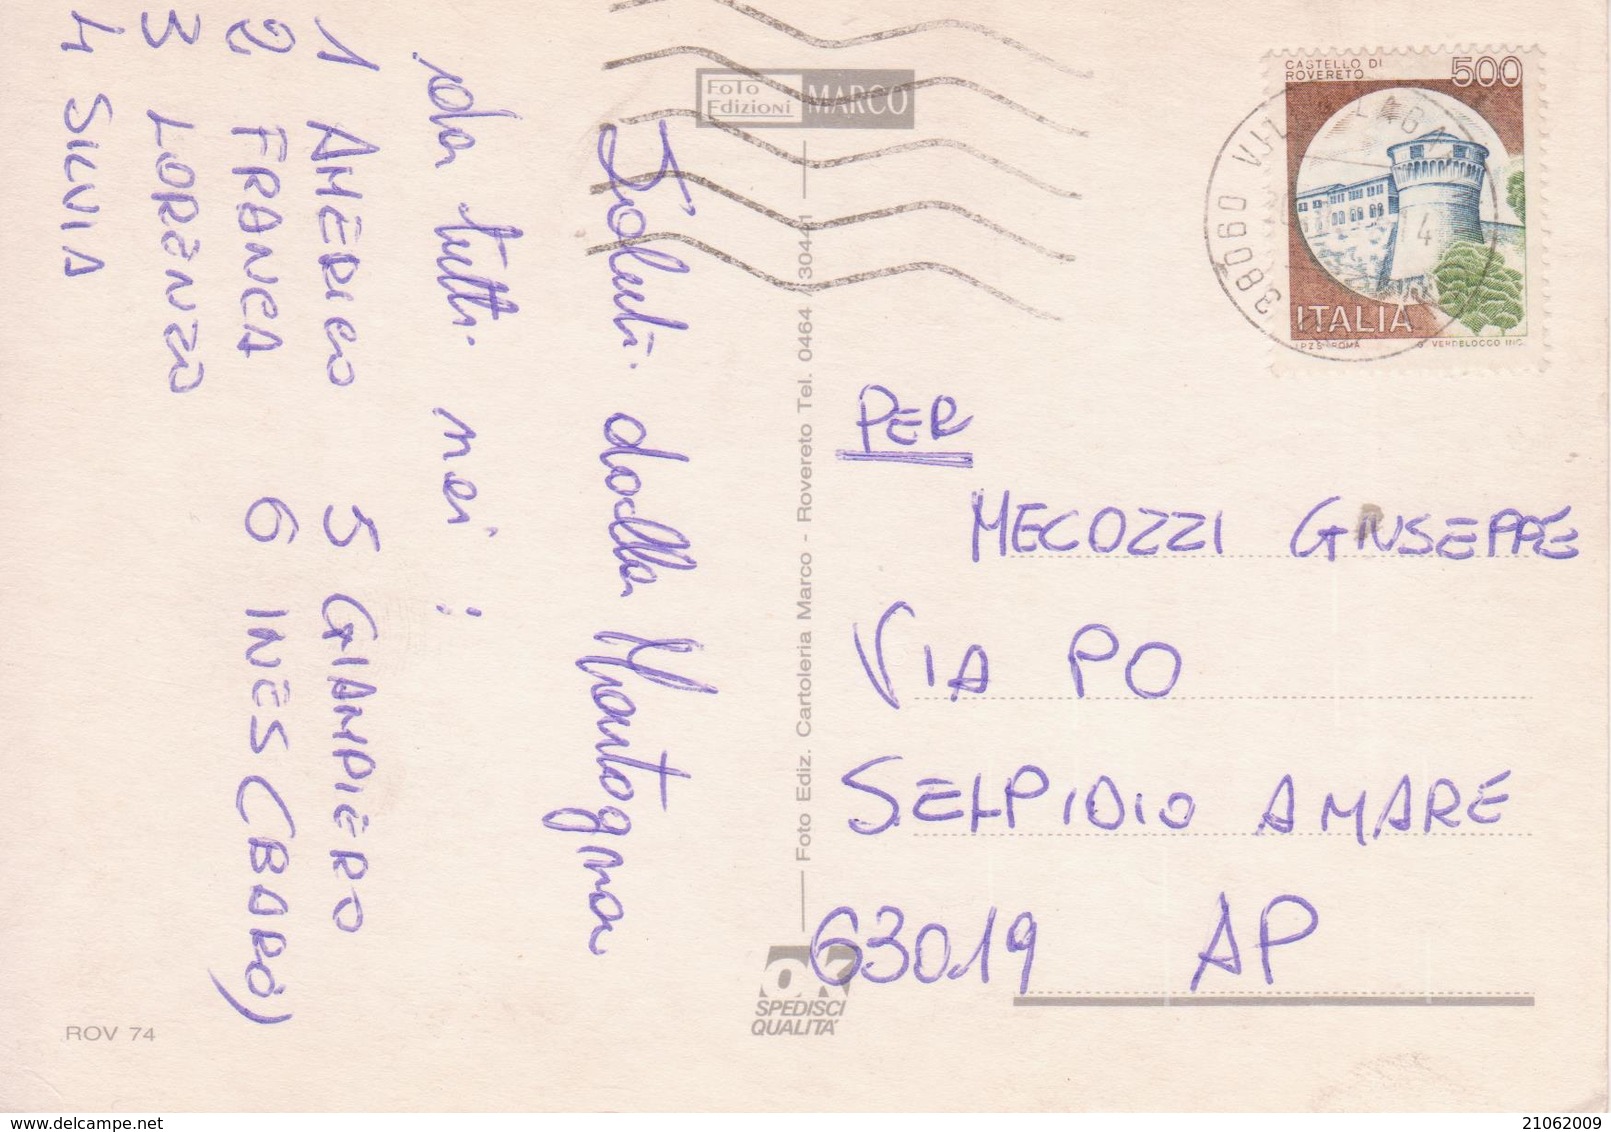 Saluti dalla Montagna
da tutti noi:
1 AMERICO
2 FRANCA
3 LORENZO
4 SILVIA
5 GIAMPIERO
6 INES (BARÒ)
Foto
Edizioni
MARCO
Foto Ediz. Cartoleria Marco - Rovereto Tel. 0464 / 30441
CASTELLO DI
ROVERETO
500
ITALIA
I.P.Z.S. ROMA
G. VERDELOCCO INC.
38060 VILLA LAGA
14
PER
MECOZZI GIUSEPPE
VIA PO
S.ELPIDIO A MARE
63019 AP
OK
SPEDISCI
QUALITA'
ROV 74
21062009